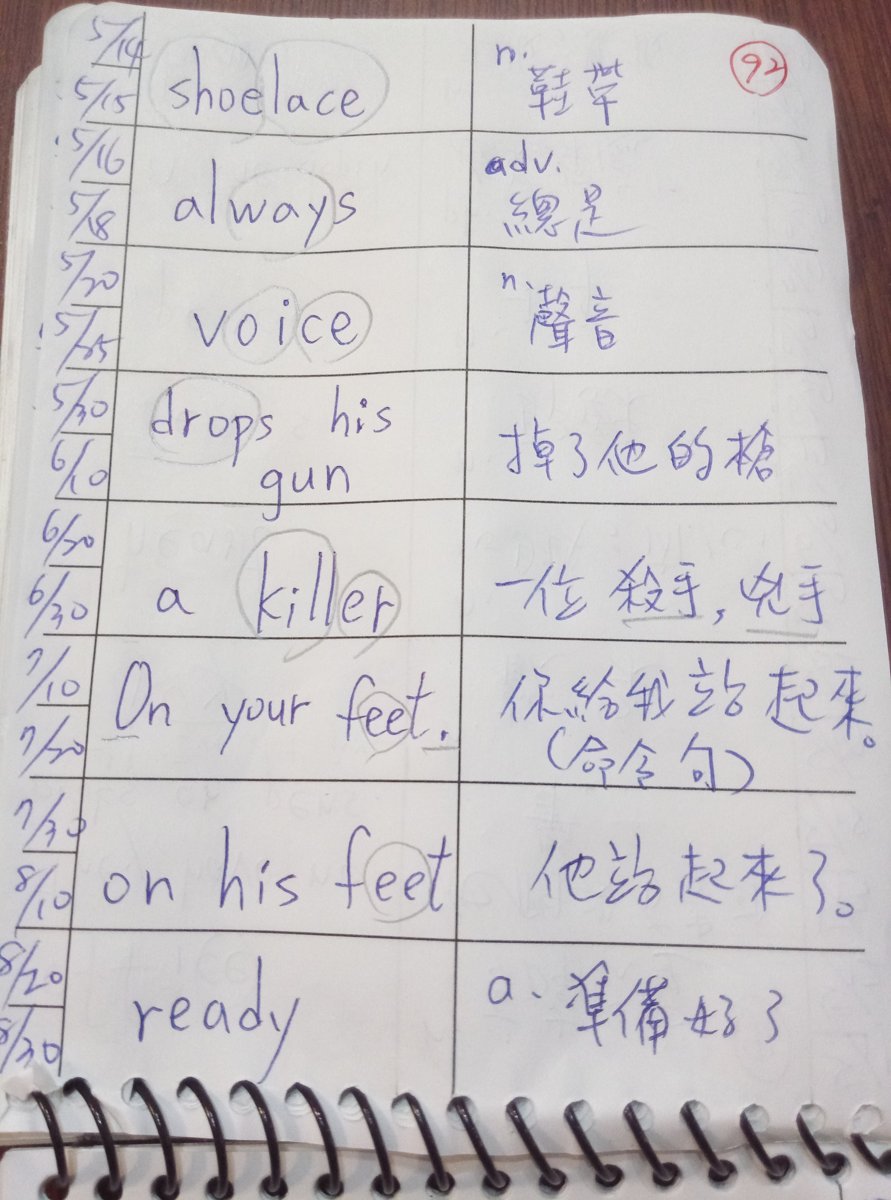 92
5/14
5/15
shoelace
n.
鞋帶
5/16
5/18
always
adv.
總是
5/20
5/25
voice
n.
聲音
5/30
6/10
drops his
gun
掉了他的槍
6/20
6/30
a killer
一位 殺手, 兇手
7/10
7/20
On your feet.
你給我站起來。
(命令句)
7/30
8/10
on his feet
他站起來了。
8/20
8/30
ready
a. 準備好了